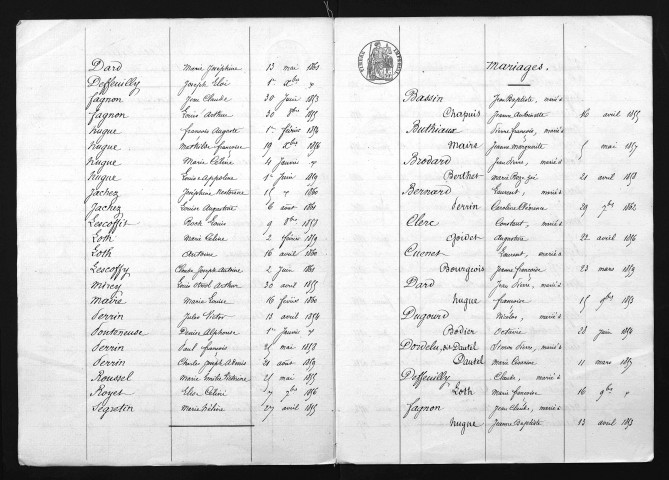 Dard Marie Joséphine 13 mai 1861
Deffeuilly Joseph Eloi 1er Xbre "
Fagnon Jean Claude 30 Juin 1853
Fagnon Louis Arthur 30 8bre 1855
Hugue François Auguste 1er février 1854
Hugue Mathilde françoise 19 Xbre 1856
Hugue Marie Céline 4 Janvier "
Hugue Louise Appoline 1er Juin 1859
Jachez Joséphine 15 " 1860
Jachez Louise Augustine 6 août 1861
Lescoffit Rose Louise 9 8bre 1857
Loth Marie Céline 2 février 1859
Loth Antoine 16 avril 1860
Lescoffy Claude Joseph Antoine 2 Juin 1861
Mercy Louis Arthur 30 avril 1855
Maire Marie Louise 16 février 1860
Perrin Jules Victor 13 avril 1854
Denise Alphonse 1er Janvier "
Perrin Paul françois 25 mai 1858
Perrin Charles Joseph 21 août 1859
Roussel Marie Emilie 25 mai 1855
Royet Elise Céline 7 7bre 1856
Segretin Marie 27 avril 1855
Mariages.
Bassin Jean Baptiste, marié à
Chapuis Jeanne Antoinette 16 avril 1855
Buthiaux Pierre françois, marié à
Maire Jeanne marguerite 5 mai 1857
Brodard Jean Pierre, marié à
Berthet marie 21 avril 1858
Bernard Laurent, marié à
Perrin Caroline Clémence 29 7bre 1862
Clerc Constant, marié à
Augustine 22 avril 1856
Cuenet Laurent, marié à
Bourgeois Jeanne françoise 23 mars 1859
Dard Jean Pierre, marié à
Hugue françoise 15 9bre 1853
Dugourd Nicolas, marié à
Bodier Octavie 28 juin 1854
Dordelu, dit Dautel Simon Pierre, marié à
Dautel marie 11 mars 1855
Deffeuilly Claude, marié à
Loth Marie françoise 16 9bre "
Fagnon Jean Claude, marié à
Hugue Jeanne Baptiste 13 avril 1853